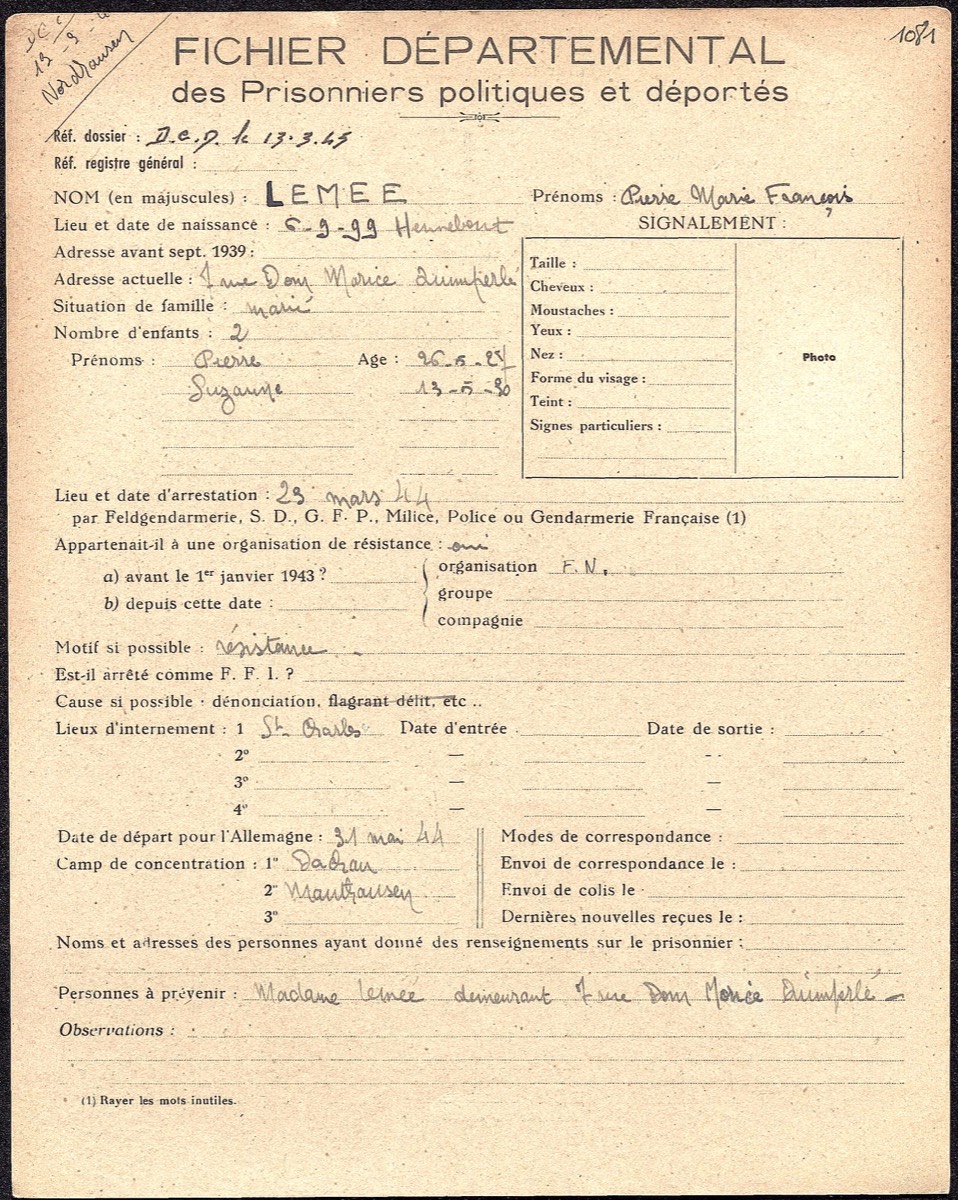 DCé
13-3-4
Nordhausen
1081
FICHIER DÉPARTEMENTAL
des Prisonniers politiques et déportés
Réf. dossier : D.C.D. le 13.3.45
Réf. registre général :
NOM (en majuscules) : LEMEE Prénoms : Pierre Marie François
Lieu et date de naissance : 6-9-99 Hennebont SIGNALEMENT :
Adresse avant sept. 1939 :
Adresse actuelle : 7 rue Dom Morice Quimperlé
Situation de famille : marié
Nombre d'enfants : 2
Prénoms : Pierre Age : 26-5-27
Suzanne 13-5-30
Taille :
Cheveux :
Moustaches :
Yeux :
Nez :
Forme du visage :
Teint :
Signes particuliers :
Photo
Lieu et date d'arrestation : 23 mars 44
par Feldgendarmerie, S. D., G. F. P., Milice, Police ou Gendarmerie Française (1)
Appartenait-il à une organisation de résistance : oui
a) avant le 1er janvier 1943 ?
b) depuis cette date :
organisation F.N.
groupe
compagnie
Motif si possible : résistance
Est-il arrêté comme F. F. I. ?
Cause si possible : dénonciation, flagrant délit, etc ..
Lieux d'internement : 1 St Charles Date d'entrée Date de sortie :
2° — - -
3° — —
4° — —
Date de départ pour l'Allemagne : 31 mai 44
Camp de concentration : 1° Dachau
2° Mauthausen
3°
Modes de correspondance :
Envoi de correspondance le :
Envoi de colis le
Dernières nouvelles reçues le :
Noms et adresses des personnes ayant donné des renseignements sur le prisonnier :
Personnes à prévenir : Madame Lemée demeurant 7 rue Dom Morice Quimperlé
Observations :
(1) Rayer les mots inutiles.